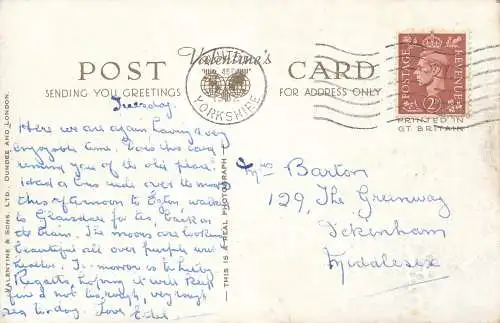 POST Valentine's CARD
SENDING YOU GREETINGS
FOR ADDRESS ONLY
WHITBY
YORKSHIRE
POSTAGE
REVENUE
2D
PRINTED IN
GT BRITAIN
VALENTINE & SONS, LTD., DUNDEE AND LONDON.
THIS IS A REAL PHOTOGRAPH
Tuesday.
Here we are again having a very
enjoyable time. Does this card
remind you of the old place.
I had a bus ride over the moors
this afternoon to Egton, walked
to Glaisdale for tea, back on
the train. The moors are looking
beautiful all over purple with
heather. To-morrow is Whitby
Regatta, hoping it will keep
fine & not too rough, very rough
sea to-day. Love Ethel
Mrs Barton
129, The Greenway
Ickenham
Middlesex